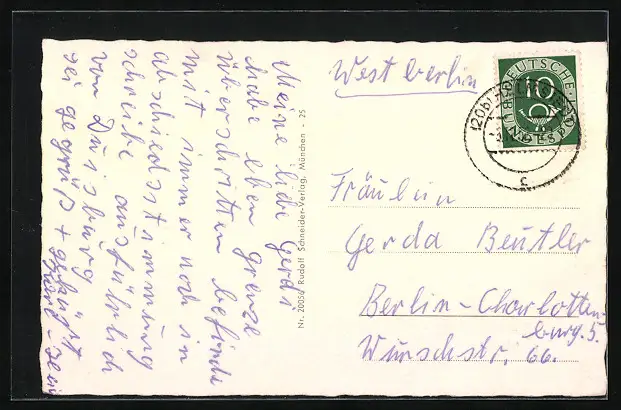 Meine liebe Gerdi
habe eben grenze
überschritten befinde
mit immer noch in
abschiedsstimmung
schreibe ausfürlich
von Duisburg
sei gegrüßt + geküsst
Nr. 20050 Rudolf Schneider-Verlag, München - 25
West Berlin
DEUTSCHE
10
BUNDESPOST
(20b)
c
Fräulein
Gerda Beutler
Berlin-Charlotten-
burg. 5.
Wunschstr. 66.